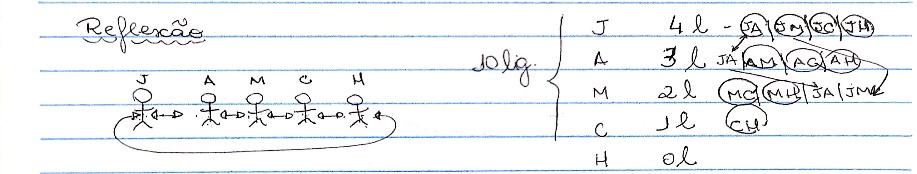 Reflexão
J A M C H
10 lig.
J 4 l - JA | JM | JC | JH
A 3 l JA | AM | AC | AH
M 2 l MC | MH | JA | JM
C 1 l CH
H 0 l